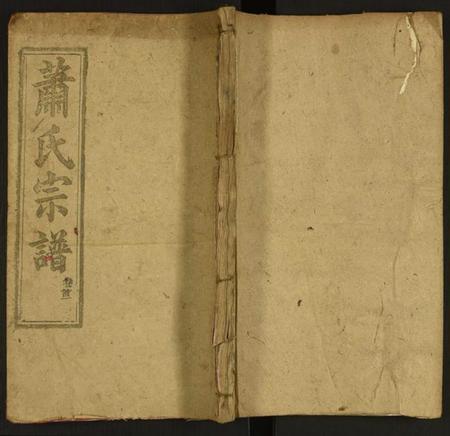 蕭氏宗譜
卷首